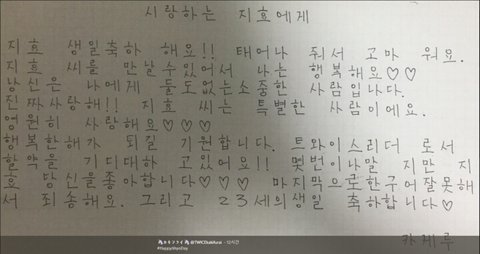 사랑하는 지효에게
지효 생일축하 해요!! 태어나 줘서 고마 워요.
지효 씨를 만날수있어서 나는 행복해요♡♡
당신은 나에게 둘도없는소중한 사람입니다.
진짜사랑해!! 지효 씨는 특별한 사람이에요.
영원히 사랑해요♡♡♡
행복한해가 되길 기원합니다. 트와이스리더 로서
할약을 기디대하 고있어요!! 몇번이나말 지만 지
효 당신을좋아합니다♡♡♡ 마지막으로한구어잘못해
서 죄송해요. 그리고 23세의생일 축하합니다♡
카제루
@TWICEbukifurai · 12시간